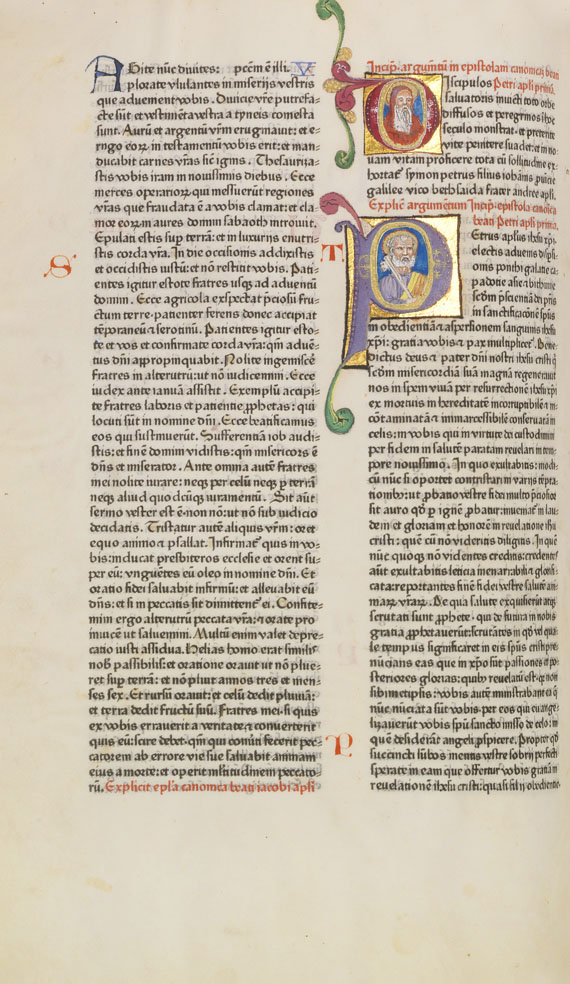 ADite nūc divites: pctm ē illi. V
plorate ululantes in miserijs vestris
que advenient vobis. Divicie vr̄e putrefa-
cte sūt et vestimēta vestra a tyneis comesta
sunt. Aurū et argentū vr̄m eruginavit: et e-
rugo eoꝝ in testamentū vobis erit: et man-
ducabit carnes vr̄as sic ignis. Thesauriza-
stis vobis iram in novissimis diebus. Ecce
merces operarioꝝ qui messuerūt regiones
vr̄as que fraudata ē a vobis clamat: et cla-
mor eoꝝ in aures domini sabaoth introivit.
Epulati estis suꝑ terrā: et in luxurijs enutri-
stis corda vr̄a. In die occisionis addixistis
et occidistis iustū: et nō restitit vobis. Pati-
entes igitur estote fratres usqꝫ ad adventū
domini. Ecce agricola exspectat p̄ciosū fru-
ctum terre: patienter ferens donec accipiat
tēporaneū ⁊ serotinū. Patientes igitur esto-
te et vos et confirmate corda vr̄a: qm̄ adven-
tus dn̄i appropinquabit. Nolite ingemiscē
fratres in alterutrū: ut nō iudicemini. Ecce
iudex ante ianuā assistit. Exemplū accipi-
te fratres laboris et patientie, ꝓphetas: qui
locuti sūt in nomine dn̄i. Ecce beatificamus
eos qui sustinuerūt. Sufferentiā iob audi-
stis: et finē domini vidistis: qm̄ misericors ē
dn̄s et miserator. Ante omnia autē fratres
mei nolite iurare: neqꝫ per celū neqꝫ ꝑ terrā
neqꝫ aliud quodcūqꝫ iuramentū. Sit aūt
sermo vester est ē·non nō: ut nō sub iudicio
decidatis. Tristatur autē aliquis vr̄m: oret
equo animo ⁊ psallat. Infirmat̄ quis in vo-
bis: inducat presbiteros ecclesie et orent su-
per eū: vnguētes eū oleo in nomine dn̄i. Et
oratio fidei salvabit infirmū: et alleviabit eū
dn̄s: et si in peccatis sit dimittent̄ ei. Confite-
mini ergo alterutrū peccata vr̄a: ⁊ orate pro
invicē ut salvemini. Multū enim valet depre-
catio iusti assidua. Helias homo erat similis
nob̄ passibilis: et oratione oravit ut nō plue-
ret suꝑ terrā: et nō pluit annos tres et men-
ses sex. Et rursū oravit: et celū dedit pluviā:
et terra dedit fructū suū. Fratres mei si quis
ex vobis erraverit a veritate ⁊ converterit
quis eū: scire debet·qm̄ qui converti fecerit pec-
catorem ab errore vie sue salvabit animam
eius a morte: et operit multitudinem peccato-
rū. Explicit epl̄a canonica beati iacobi apl̄i
S
Incip̄. argumētū in epistolam canonicā beati
Petri apl̄i primā.
DIscipulos
salvatoris invicti toto orbe
diffusos et peregrinos
seculo monstrat·et preterite
vite penitere suadet: et in no-
uam vitam proficere tota cū sollitudine ex-
hortat̄ symon petrus filius iohānis ꝓvincie
galilee vico bethsaida frater andree apl̄i.
Explic̄ argumentum Incip̄·epistola canōica
beati Petri apl̄i prima.
T
PEtrus apl̄us ihesu xp̄i
electis advenis dispsi-
onis ponthi galatie ca-
padotie asie ⁊ bithinie
scd̄m p̄scientiā dei pr̄is
in sanctificaciōne sp̄us
in obedientiā ⁊ aspersionem sanguinis ihesu
xp̄i: gratia vobis ⁊ pax multiplicet̄. Bene-
dictus deus ⁊ pater dn̄i nostri ihesu cristi q̄
scd̄m misericordiā suā magnā regeneravit
nos in spem vivā per resurrectionē ihesu xp̄i
ex mortuis in hereditatē incorruptibilē ⁊ in-
cōtaminatā ⁊ immarcessibilē conservatā in
celis: in vobis qui in virtute dei custodimini
per fidem in salutē paratam revelari in tem-
pore novissimo. In quo exultabitis: modi-
cū nūc si oportet contristari in varijs tēpta-
tionibꝫ: ut ꝓbatio vestre fidei multo p̄ciosior
sit auro qd̄ ꝑ ignē ꝓbatur: inveniat̄ in lau-
dem et gloriam et honorē in revelatione ihesu
cristi: que cū nō videritis diligitis. In quē
nūc quoqꝫ nō videntes creditis: credentes
aūt exultabitis leticia inenarrabili ⁊ glorifi-
cata: reportantes finē fidei vestre salutē ani-
maꝝ vr̄aꝝ. De qua salute exquisierūt atqꝫ
scrutati sunt ꝓphete·qui de futura in nobis
gratia ꝓphetaverūt: scrutātes in qd̄ vel qua-
le tempus significaret in eis sp̄us cristi: pre-
nūcians eas que in xp̄o sūt passiones et po-
steriores glorias: quibꝫ revelatū est·qꝫ non
sibimetipsis: vobis autē ministrabant ea q̄
nūc nūciata sūt vobis per eos qui evange-
lizaverūt vobis sp̄u sancto misso de celo: in
quē desiderāt angeli ꝓspicere. Propter qd̄
succincti lumbos mentis vestre sobrij perfecte
sperate in eam que offertur vobis gratiam in
revelationē ihesu cristi: quasi filij obedientie
P